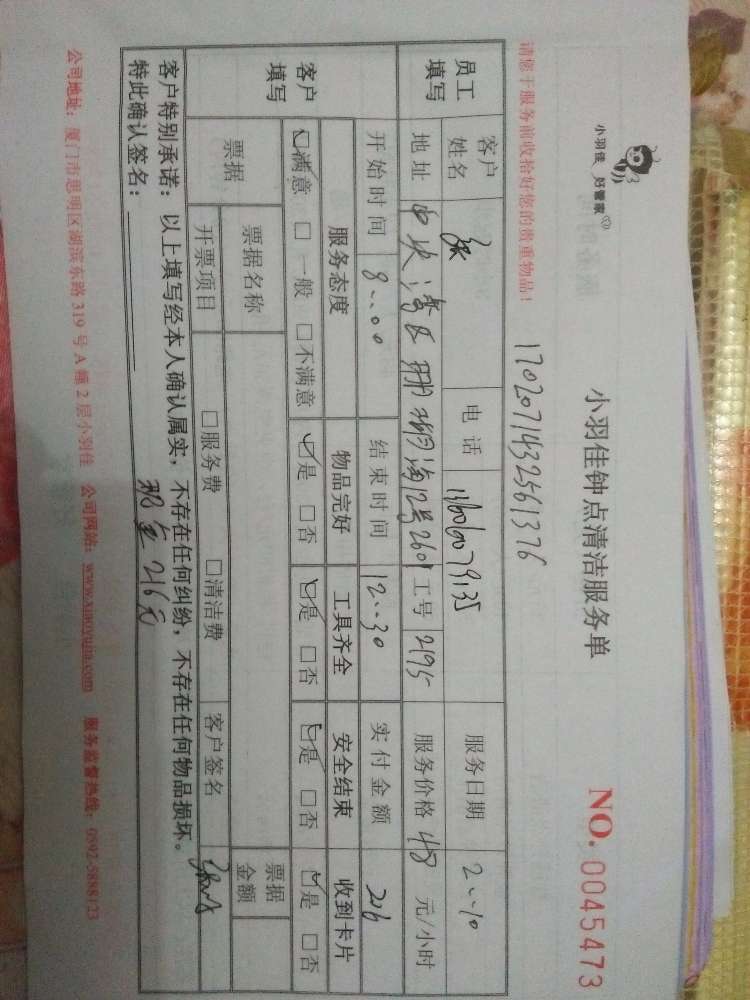 小羽佳 好管家
小羽佳钟点清洁服务单
NO. 0045473
请您于服务前收拾好您的贵重物品！
1702071432561376
员工填写 客户姓名 张 电话 13606079135 服务日期 2...10
地址 中央湾区珊瑚海12号260 工号 2195 服务价格 48 元/小时
客户填写 开始时间 8...00 结束时间 12...30 实付金额 216
服务态度 物品完好 工具齐全 安全结束 收到卡片
☑满意 □一般 □不满意 ☑是 □否 ☑是 □否 ☑是 □否 ☑是 □否
票据 票据名称 票据金额
开票项目 □服务费 □清洁费 客户签名
客户特别承诺：以上填写经本人确认属实，不存在任何纠纷，不存在任何物品损坏。
特此确认签名： 现金216元
公司地址：厦门市思明区湖滨东路319号A幢2层小羽佳 公司网站：www.xiaoyujia.com 服务监督热线：0592-5888123